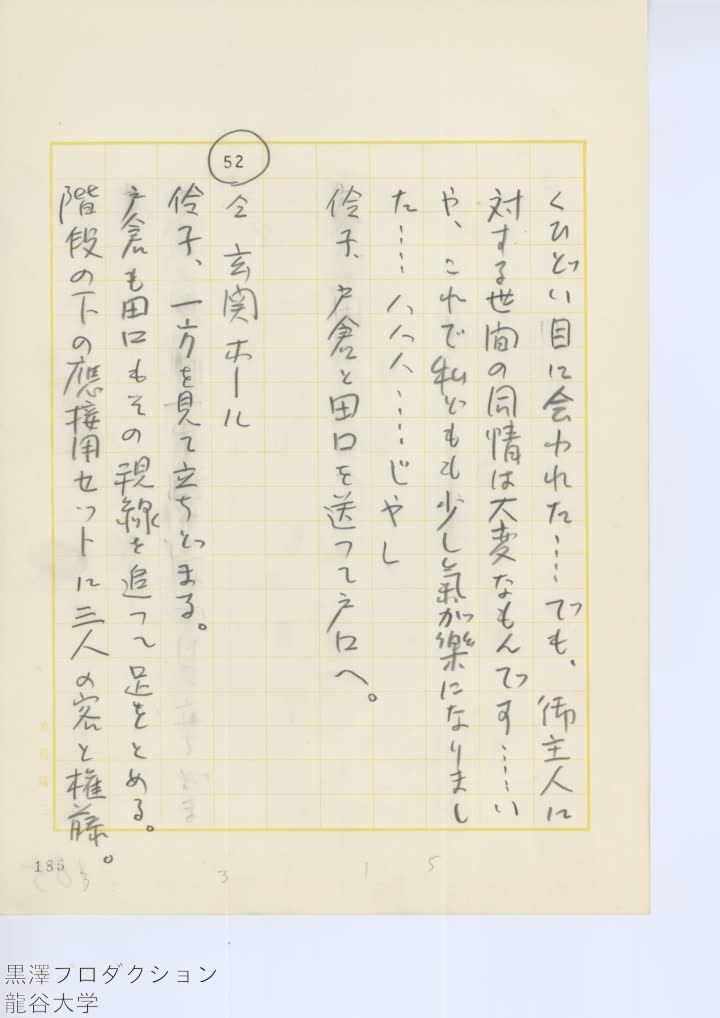 くひどい目に会われた……でも、御主人に
対する世間の同情は大変なもんです……い
や、これで私ども も少し氣が樂になりまし
た……ハハハ……じやし
伶子、戸倉と田口を送つて戸口へ。
52
仝 玄関ホール
伶子、一方を見て立ちどまる。
戸倉も田口もその視線を追つて足をとめる。
階段の下の應接用セットに三人の客と権藤。
185
3
3
1
5
黒澤プロダクション
龍谷大学